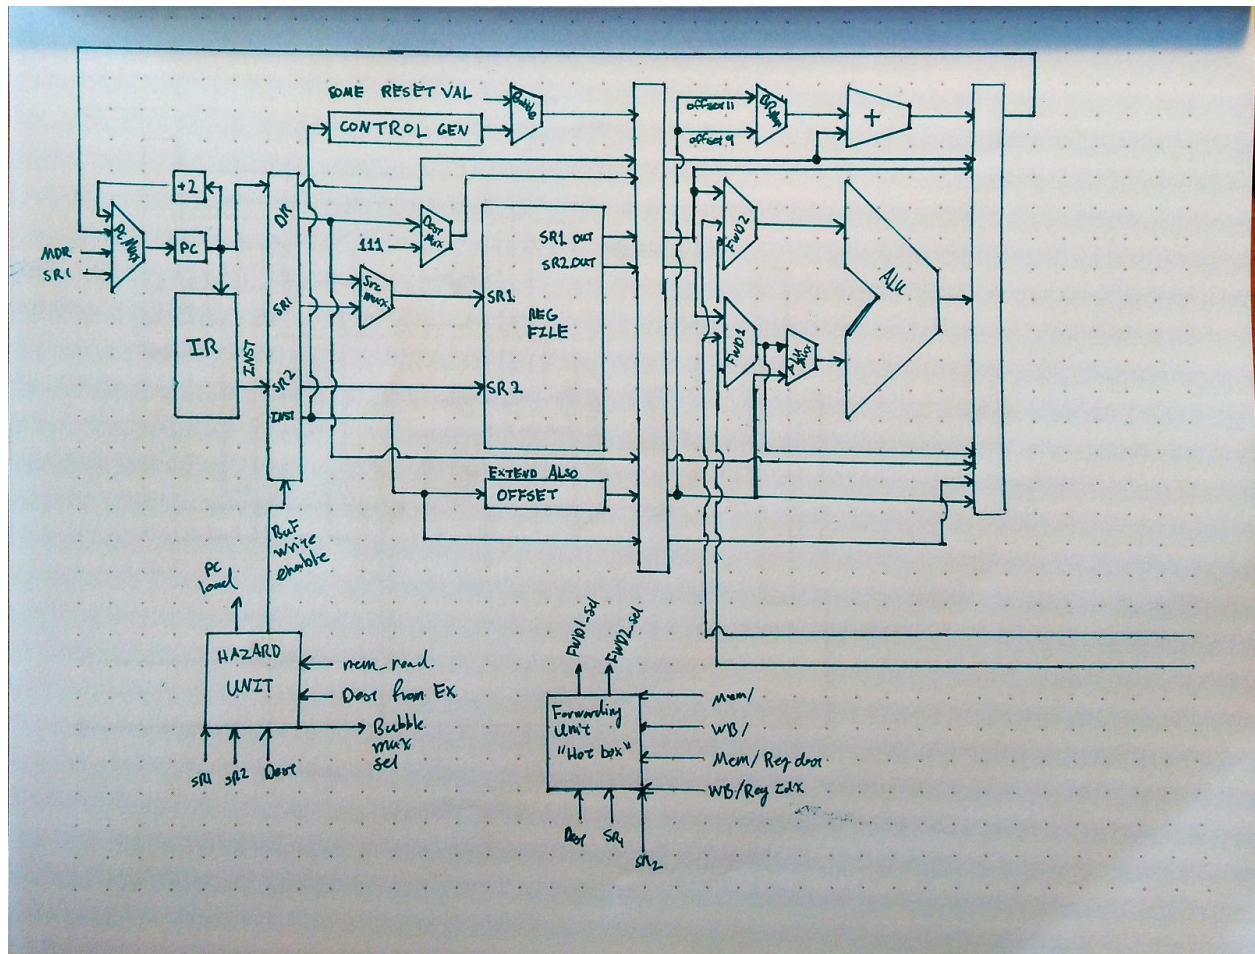 SOME RESET VAL
Bubble
CONTROL GEN
offset11
offset9
+
+2
PC Mux
PC
MDR
SR1
DR
Dest Mux
111
SR1 OUT
SR2 OUT
FWD2
ALU
Sr2 mux
SR1
SR1
REG
FILE
IR
INST
FWD1
SR2
SR2
INST
EXTEND ALSO
OFFSET
Buf
write
enable
PC
load
HAZARD
UNIT
mem_read.
Dest from Ex
Bubble
mux
sel
SR1
SR2
Dest
FWD1_sel
FWD2_sel
Forwarding
Unit
"Hot box"
Mem/
WB/
Mem/Reg dest
WB/Reg Idx
Dest
SR1
SR2